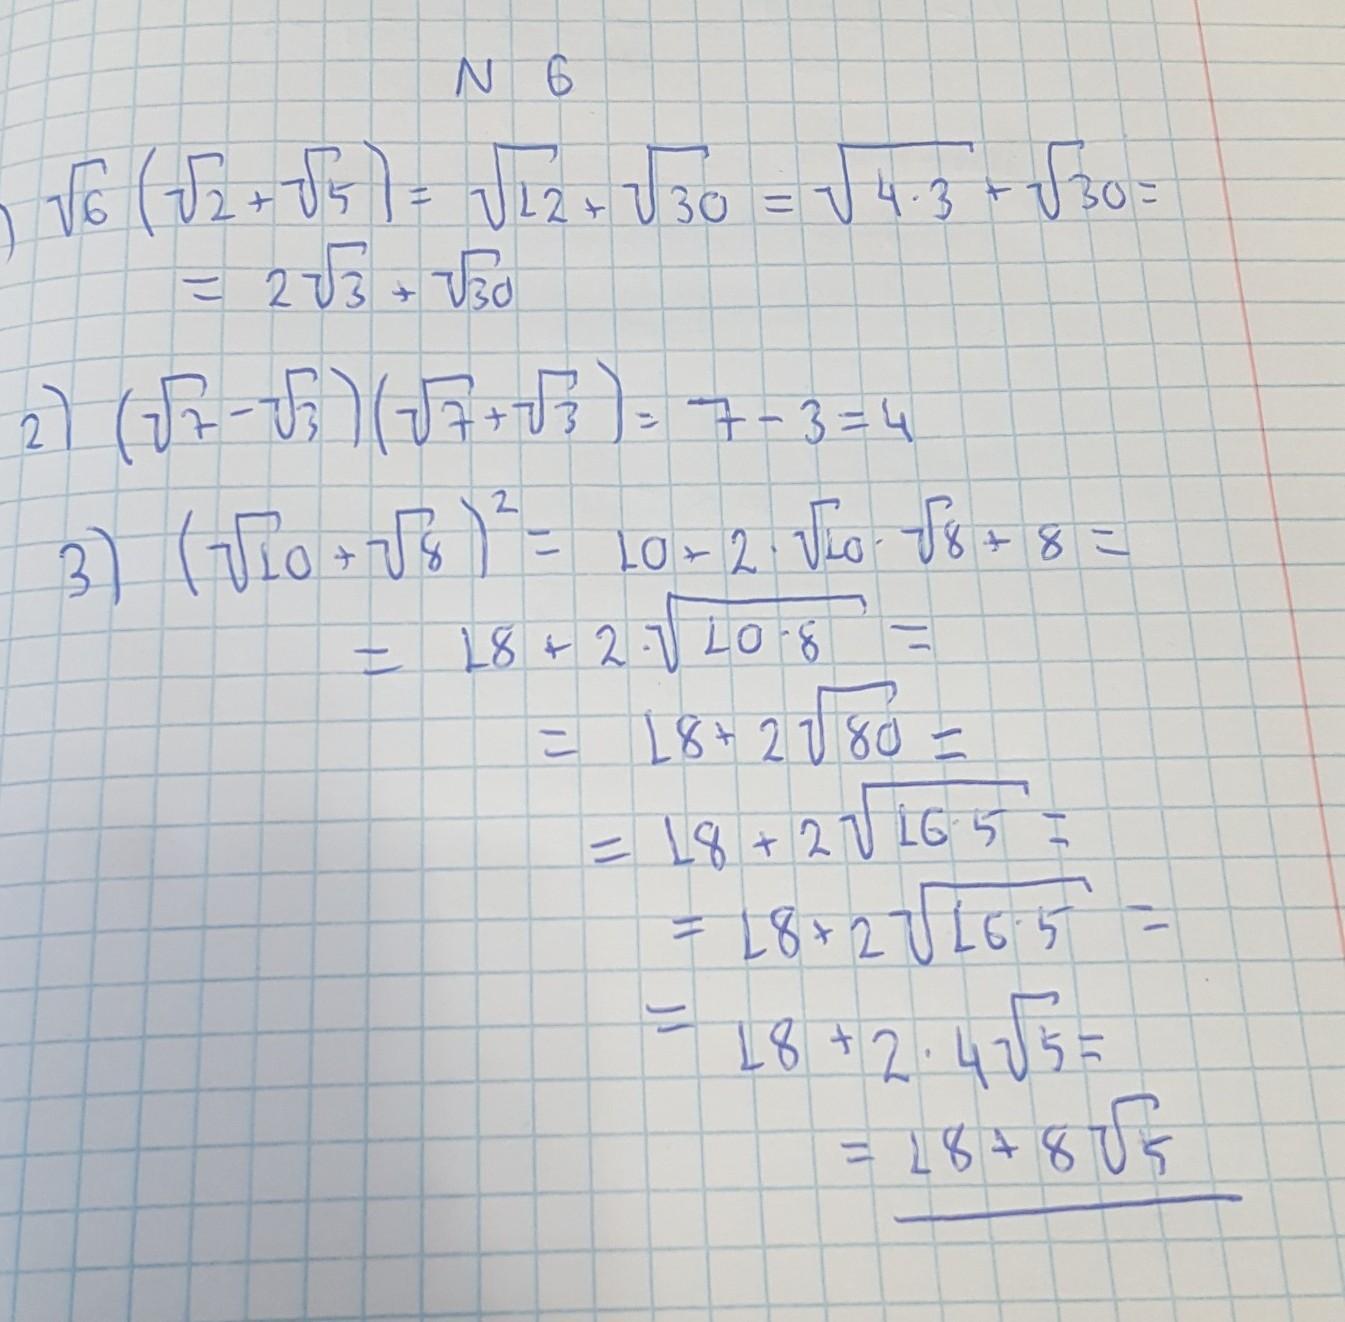 N 6
) √6 (√2 + √5) = √12 + √30 = √4·3 + √30 =
= 2√3 + √30
2) (√7 - √3)(√7 + √3) = 7 - 3 = 4
3) (√10 + √8)² = 10 + 2·√10·√8 + 8 =
= 18 + 2·√10·8 =
= 18 + 2√80 =
= 18 + 2√16·5 =
= 18 + 2√16·5 =
= 18 + 2·4√5 =
= 18 + 8√5